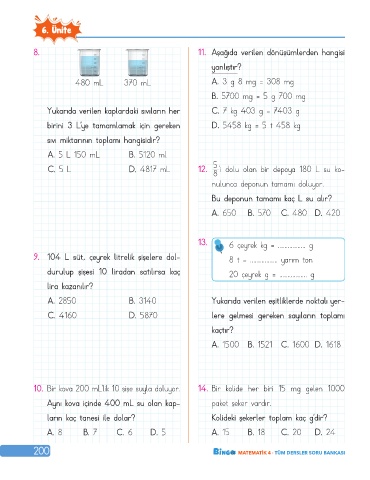 6. Ünite
8.
480 mL 370 mL
Yukarıda verilen kaplardaki sıvıların her
birini 3 L'ye tamamlamak için gereken
sıvı miktarının toplamı hangisidir?
A. 5 L 150 mL B. 5120 ml
C. 5 L D. 4817 mL
9. 104 L süt, çeyrek litrelik şişelere dol-
durulup şişesi 10 liradan satılırsa kaç
lira kazanılır?
A. 2850 B. 3140
C. 4160 D. 5870
10. Bir kova 200 mL'lik 10 şişe suyla doluyor.
Aynı kova içinde 400 mL su olan kap-
ların kaç tanesi ile dolar?
A. 8 B. 7 C. 6 D. 5
11. Aşağıda verilen dönüşümlerden hangisi
yanlıştır?
A. 3 g 8 mg = 308 mg
B. 5700 mg = 5 g 700 mg
C. 7 kg 403 g = 7403 g
D. 5458 kg = 5 t 458 kg
12. 5/8'i dolu olan bir depoya 180 L su ko-
nulunca deponun tamamı doluyor.
Bu deponun tamamı kaç L su alır?
A. 650 B. 570 C. 480 D. 420
13.
6 çeyrek kg = .............. g
8 t = .............. yarım ton
20 çeyrek g = .............. g
Yukarıda verilen eşitliklerde noktalı yer-
lere gelmesi gereken sayıların toplamı
kaçtır?
A. 1500 B. 1521 C. 1600 D. 1618
14. Bir kolide her biri 15 mg gelen 1000
paket şeker vardır.
Kolideki şekerler toplam kaç g'dir?
A. 15 B. 18 C. 20 D. 24
200
BiNGO MATEMATİK 4 - TÜM DERSLER SORU BANKASI